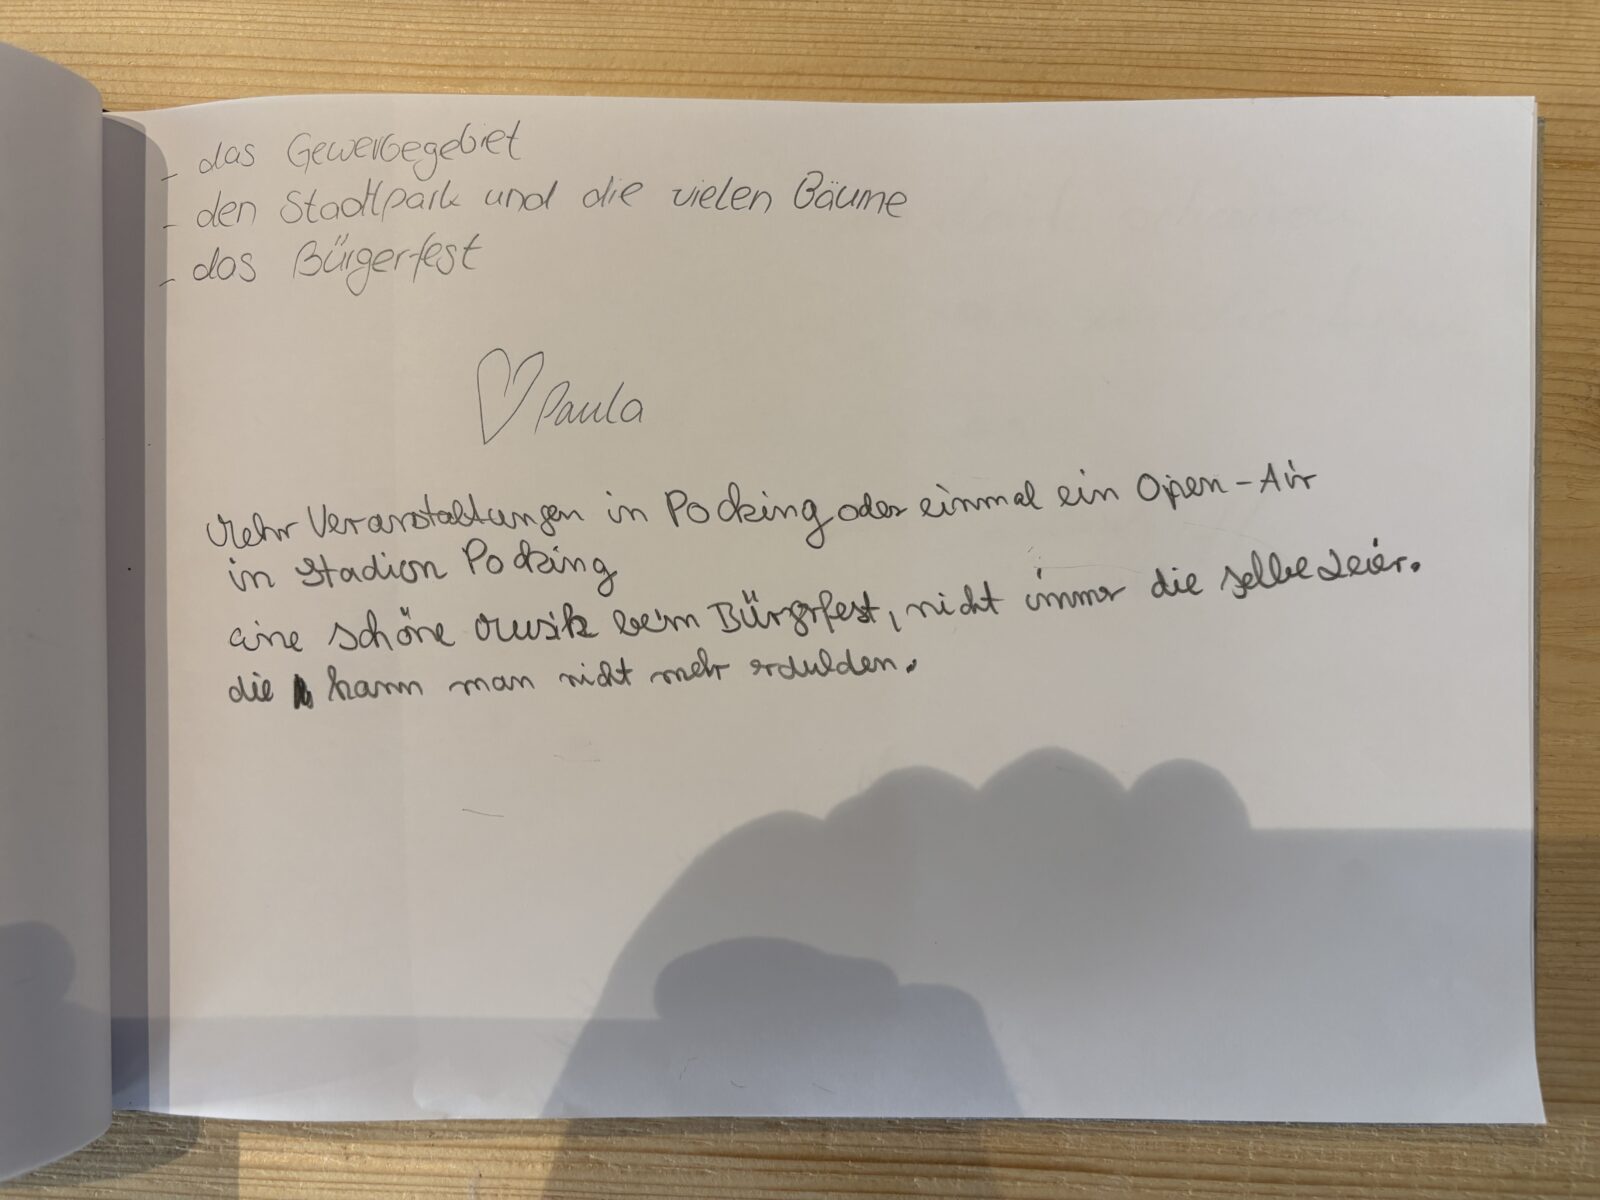 - das Gewerbegebiet
- den Stadtpark und die vielen Bäume
- das Bürgerfest
Paula
Mehr Veranstaltungen in Pocking oder einmal ein Open-Air
in Stadion Pocking
eine schöne Musik beim Bürgerfest, nicht immer die selbe Leier.
die kann man nicht mehr erdulden.